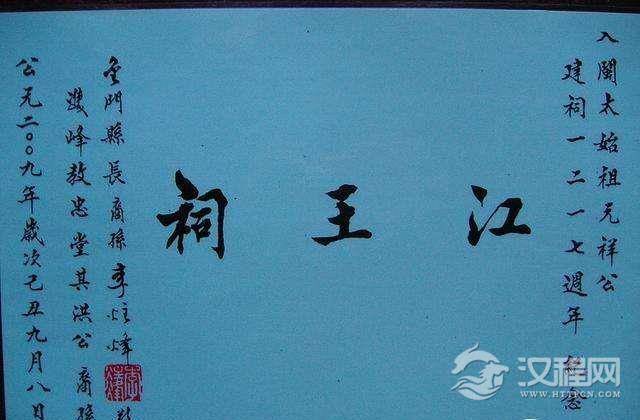 入閩太始祖元祥公
建祠一二一七週年紀念
江王祠
金門縣長裔孫李炷烽
雙峰敦忠堂其洪公裔孫
公元二〇〇九年歲次己丑九月八日
汉程网
HTTPCN.COM